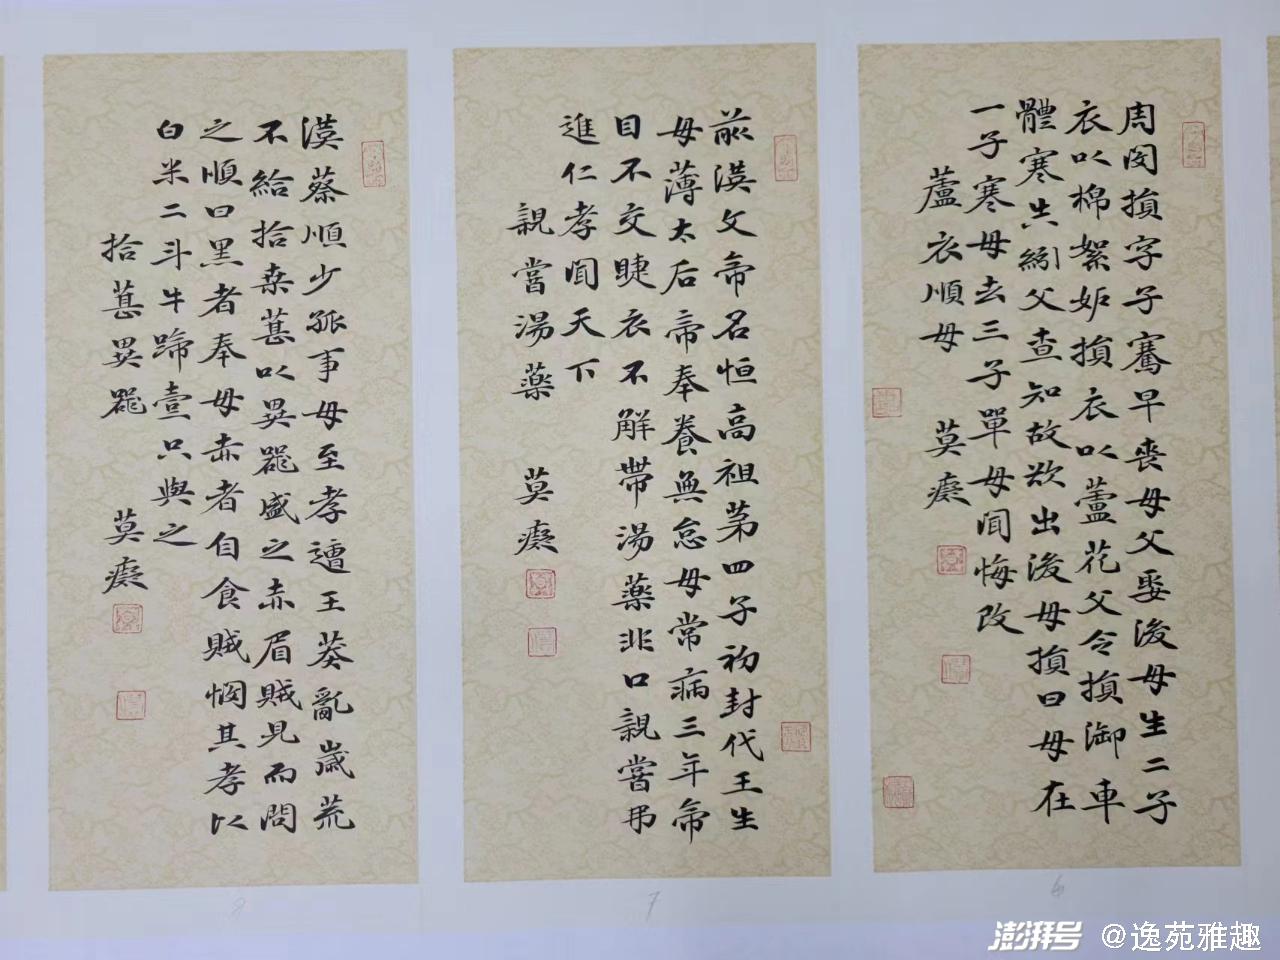 周閔損字子騫早喪母父娶後母生二子
衣以棉絮妒損衣以蘆花父令損御車
體寒失紖父查知故欲出後母損曰母在
一子寒母去三子單母聞悔改
蘆衣順母 莫癡
前漢文帝名恒高祖第四子初封代王生
母薄太后帝奉養無怠母常病三年帝
目不交睫衣不解帶湯藥非口親嘗弗
進仁孝聞天下
親嘗湯藥 莫癡
漢蔡順少孤事母至孝遭王莽亂歲荒
不給拾桑葚以異器盛之赤眉賊見而問
之順曰黑者奉母赤者自食賊憫其孝以
白米二斗牛蹄壹只與之
拾葚異器 莫癡
8
7
6
澎湃号 @逸苑雅趣